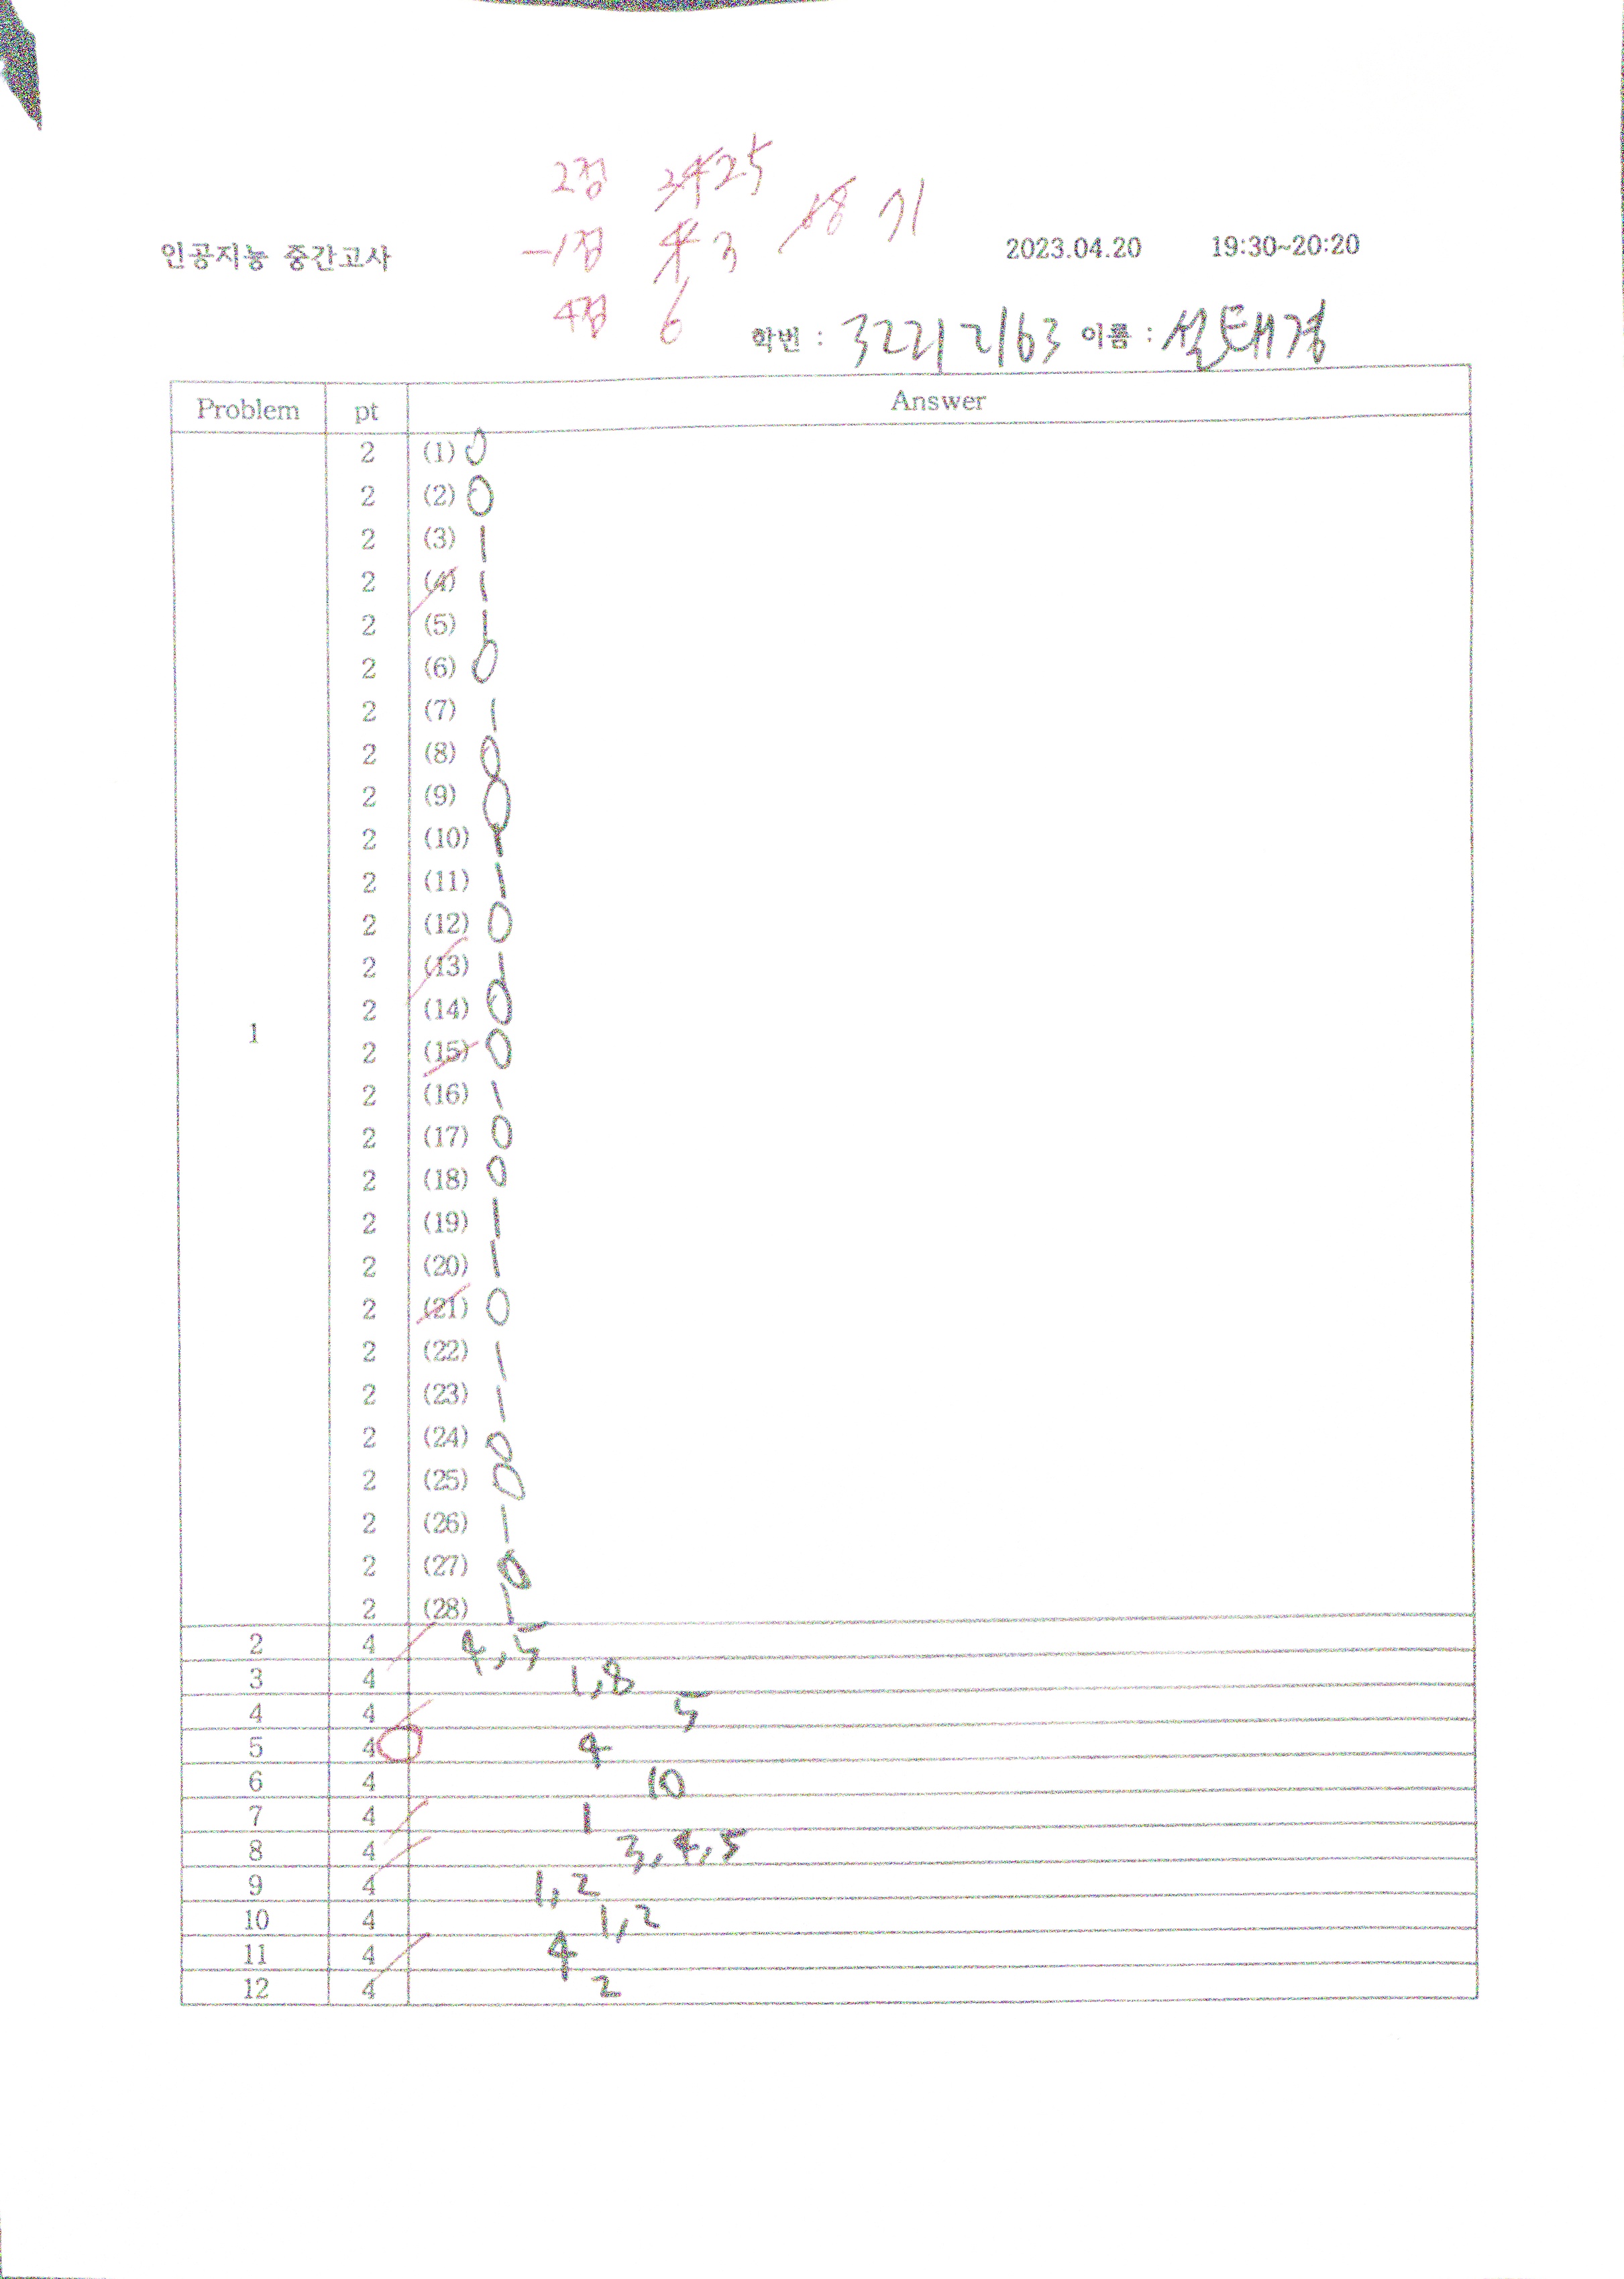 2점 24 25
-1점 4 3 68 71
인공지능 중간고사 2023.04.20 19:30~20:20
4점 6
학번 : 32212163 이름 : 설태경
Problem pt Answer
1
2 (1) 0
2 (2) 0
2 (3) 1
2 (4) 1
2 (5) 1
2 (6) 0
2 (7) 1
2 (8) 0
2 (9) 0
2 (10) 1
2 (11) 1
2 (12) 0
2 (13) 1
2 (14) 0
2 (15) 0
2 (16) 1
2 (17) 0
2 (18) 0
2 (19) 1
2 (20) 1
2 (21) 0
2 (22) 1
2 (23) 1
2 (24) 0
2 (25) 0
2 (26) 1
2 (27) 0
2 (28) 1
2 4 4,5
3 4 1,8
4 4 5
5 4 4
6 4 10
7 4 1
8 4 3,4,5
9 4 1,2
10 4 1,2
11 4 4
12 4 2